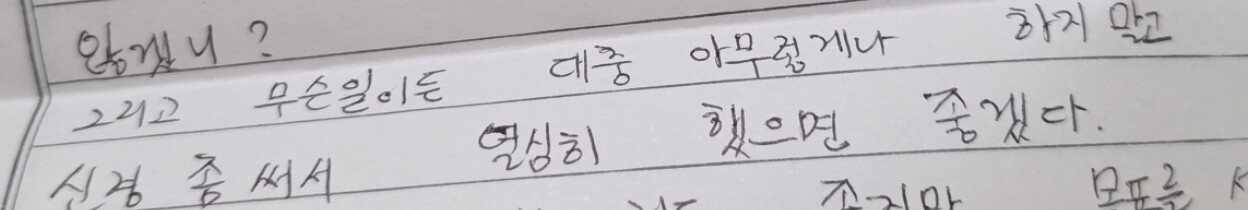 않겠니?
그리고 무슨일이든 대충 아무렇게나 하지 말고
신경 좀 써서 열심히 했으면 좋겠다.